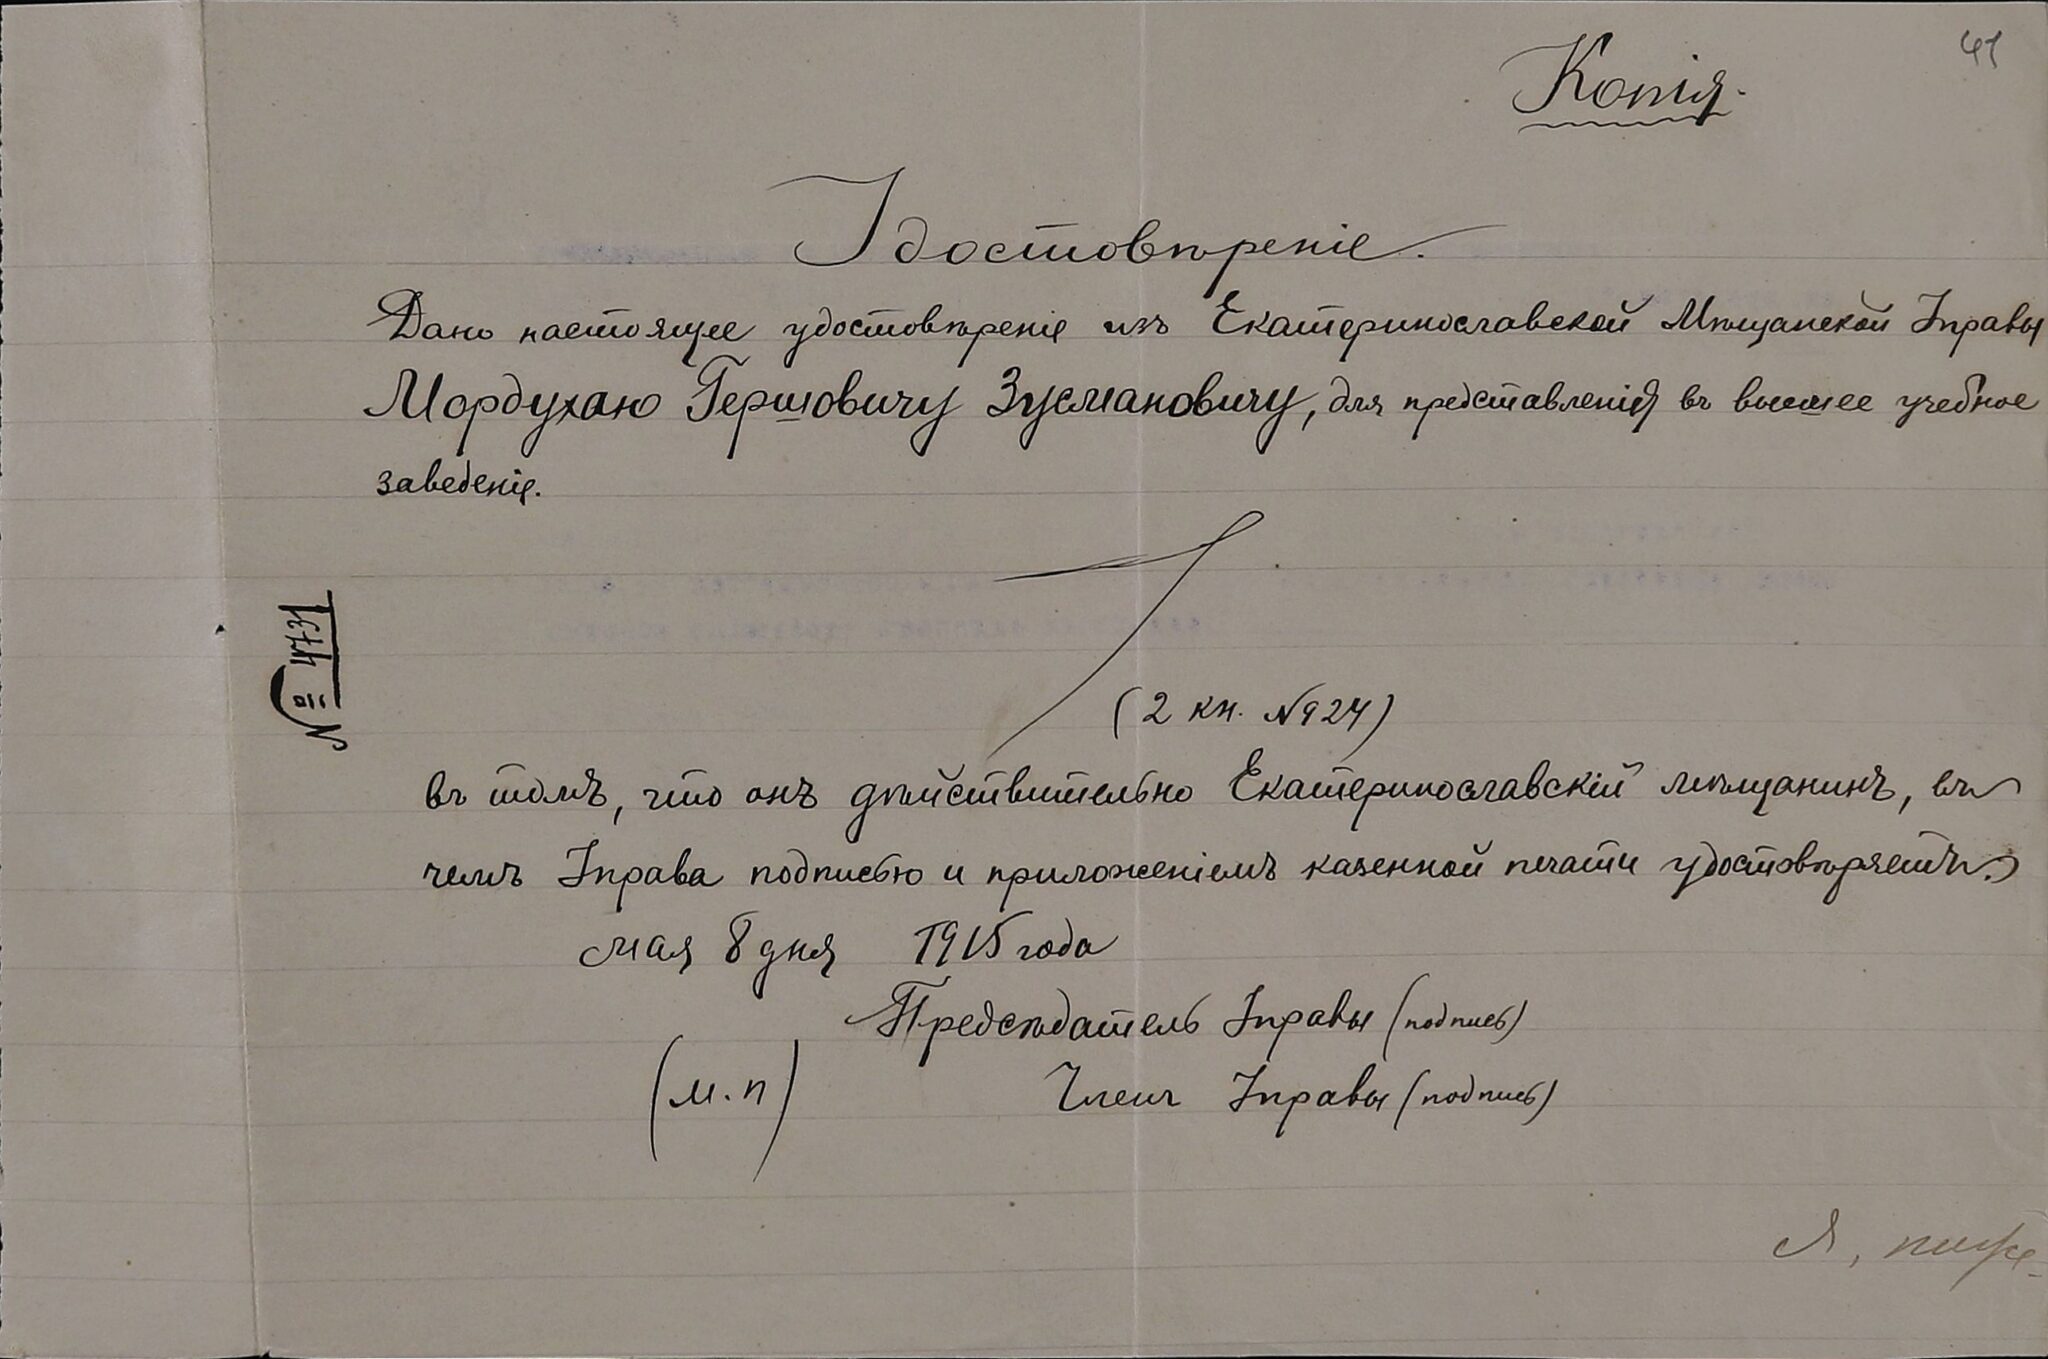 41
Копія.
Удостовѣреніе.
Дано настоящее удостовѣреніе изъ Екатеринославской Мѣщанской Управы
Мордухаю Гершовичу Зусмановичу, для представленія въ высшее учебное
заведеніе.
(2 кн. № 924)
въ томъ, что онъ дѣйствительно Екатеринославскій мѣщанинъ, въ
чемъ Управа подписью и приложеніемъ казенной печати удостовѣряетъ.
мая 8 дня 1915 года
Предсѣдатель Управы (подпись)
(м.п) Членъ Управы (подпись)
Я, ниже-